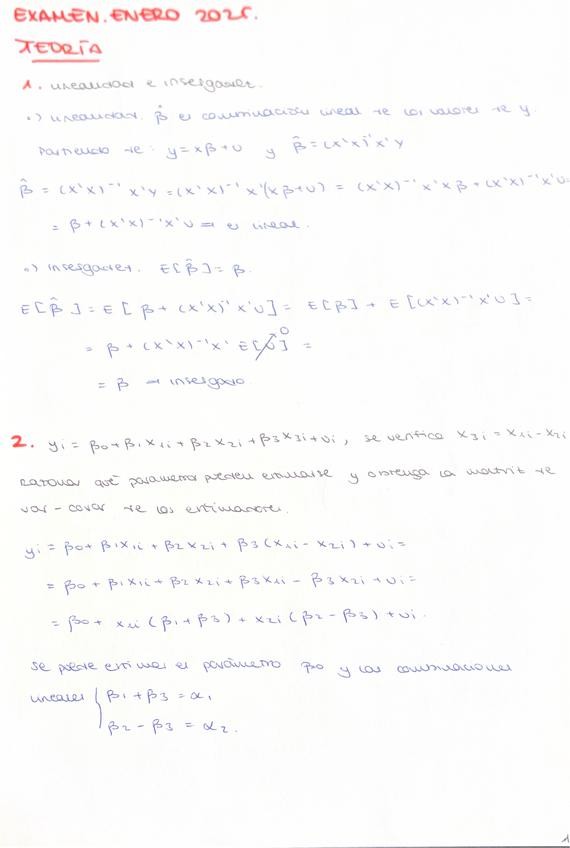 EXAMEN. ENERO 2025.
TEORÍA
1. Linealidad e insesgadez.
·) Linealidad. β̂ es combinación lineal de los valores de y
Partiendo de: y = xβ + U y β̂ = (x'x)⁻¹x'y
β̂ = (x'x)⁻¹ x'y = (x'x)⁻¹ x'(xβ+U) = (x'x)⁻¹ x'xβ + (x'x)⁻¹x'U =
= β + (x'x)⁻¹x'U → es lineal.
·) insesgadez. E[β̂] = β.
E[β̂] = E[β + (x'x)⁻¹x'U] = E[β] + E[(x'x)⁻¹x'U] =
= β + (x'x)⁻¹x' E[U] 0 =
= β → insesgado.
2. yi = β0 + β1x1i + β2x2i + β3x3i + υi, se verifica x3i = x1i - x2i
razonar qué parámetros pueden estimarse y obtenga la matriz de
var-covar de los estimadores.
yi = β0 + β1x1i + β2x2i + β3(x1i - x2i) + υi =
= β0 + β1x1i + β2x2i + β3x1i - β3x2i + υi =
= β0 + x1i(β1 + β3) + x2i(β2 - β3) + υi.
Se puede estimar el parámetro β0 y las combinaciones
lineales { β1 + β3 = α1
β2 - β3 = α2.
1